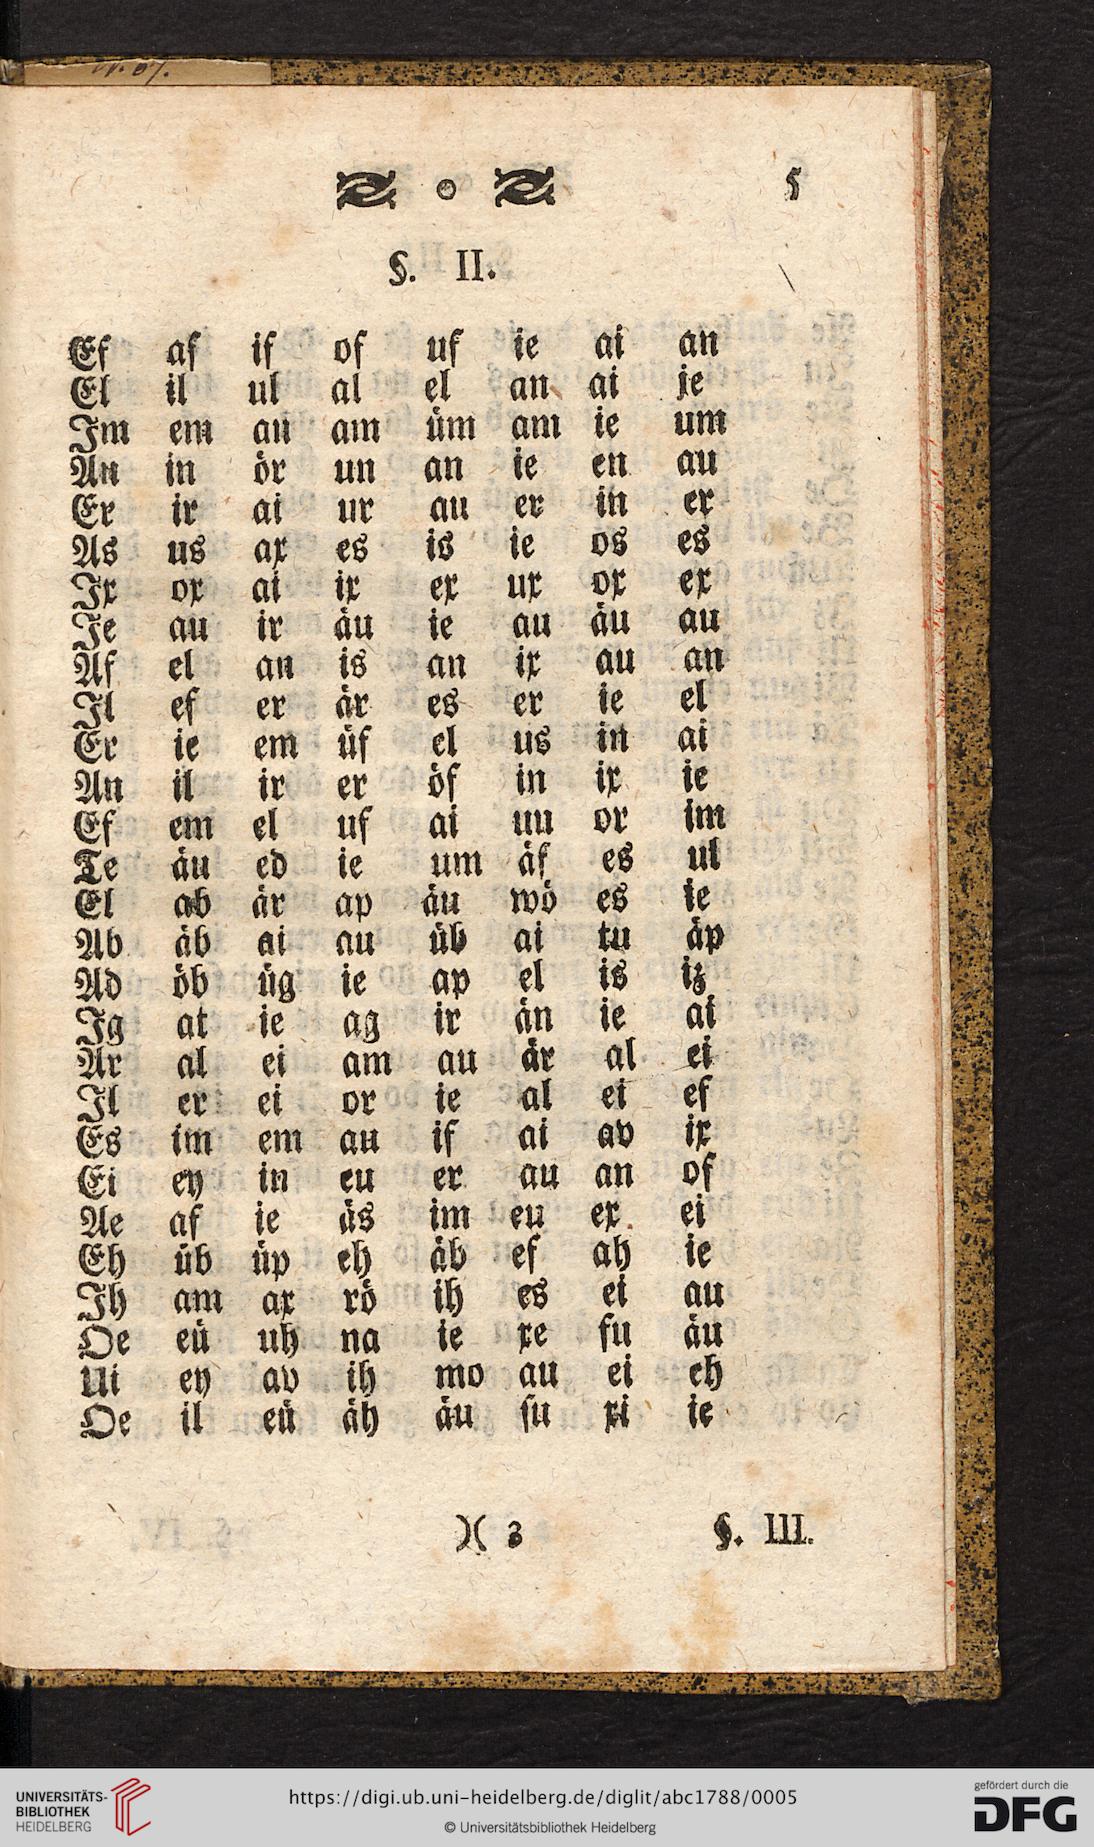 5
§. II.
Ef af if of uf ie ai an
El il ul al el an ai je
Im em au am üm am ie um
An in ör un an ie en au
Er ir ai ur au er in er
As us ax es is ie os es
Ix ox ai ix ex ux ox ex
Je au ir äu ie au äu au
Af el an is an ix au an
Il ef er är es er ie el
Er ie em üf el us in ai
An il ir er öf in ix ie
Ef em el uf ai un or im
Te äu ed ie um äf es ul
El ab är ap äu wö es ie
Ab äb ai au üb ai tu äp
Ad öb üg ie ap el is iz
Ig at ie ag ir än ie ai
Ar al ei am au är al ei
Il er ei or ie al ei ef
Es im em au if ai av ix
Ei ey in eu er au an of
Ae af ie äs im eu ex ei
Eh üb üp eh äb ef ah ie
Ih am ax rö ih es ei au
Oe eü uh na ie xe fu äu
Ui ey av ih mo au ei eh
Oe il eü äh äu ſu xi ie
)( 3 §. III.
UNIVERSITÄTS-
BIBLIOTHEK
HEIDELBERG
https://digi.ub.uni-heidelberg.de/diglit/abc1788/0005
© Universitätsbibliothek Heidelberg
gefördert durch die
DFG